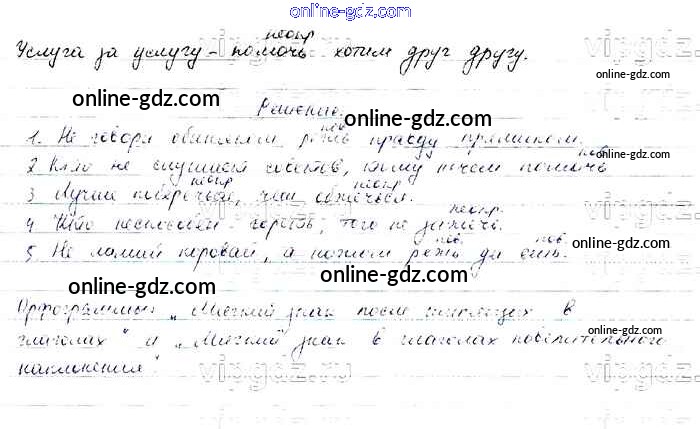 online-gdz.com
неопр
Услуга за услугу - помочь хотим друг другу.
online-gdz.com
online-gdz.com
Решение.
online-gdz.com
пов
1. Не говори обиняком, режь правду прямиком.
пов
2 Кто не слушает советов, тому нечем помочь
online-gdz.com
неопр неопр
3 Лучше поберечься, чем обжечься.
неопр.
4 Кто неспособен гореть, того не зажечь.
online-gdz.com
пов. пов.
5 Не ломай каравай, а ножом режь да ешь.
online-gdz.com
online-gdz.com
Орфограммы „Мягкий знак после шипящих в
глаголах" и „Мягкий знак в глаголах повелительного
online-gdz.com
наклонения"
online-gdz.com